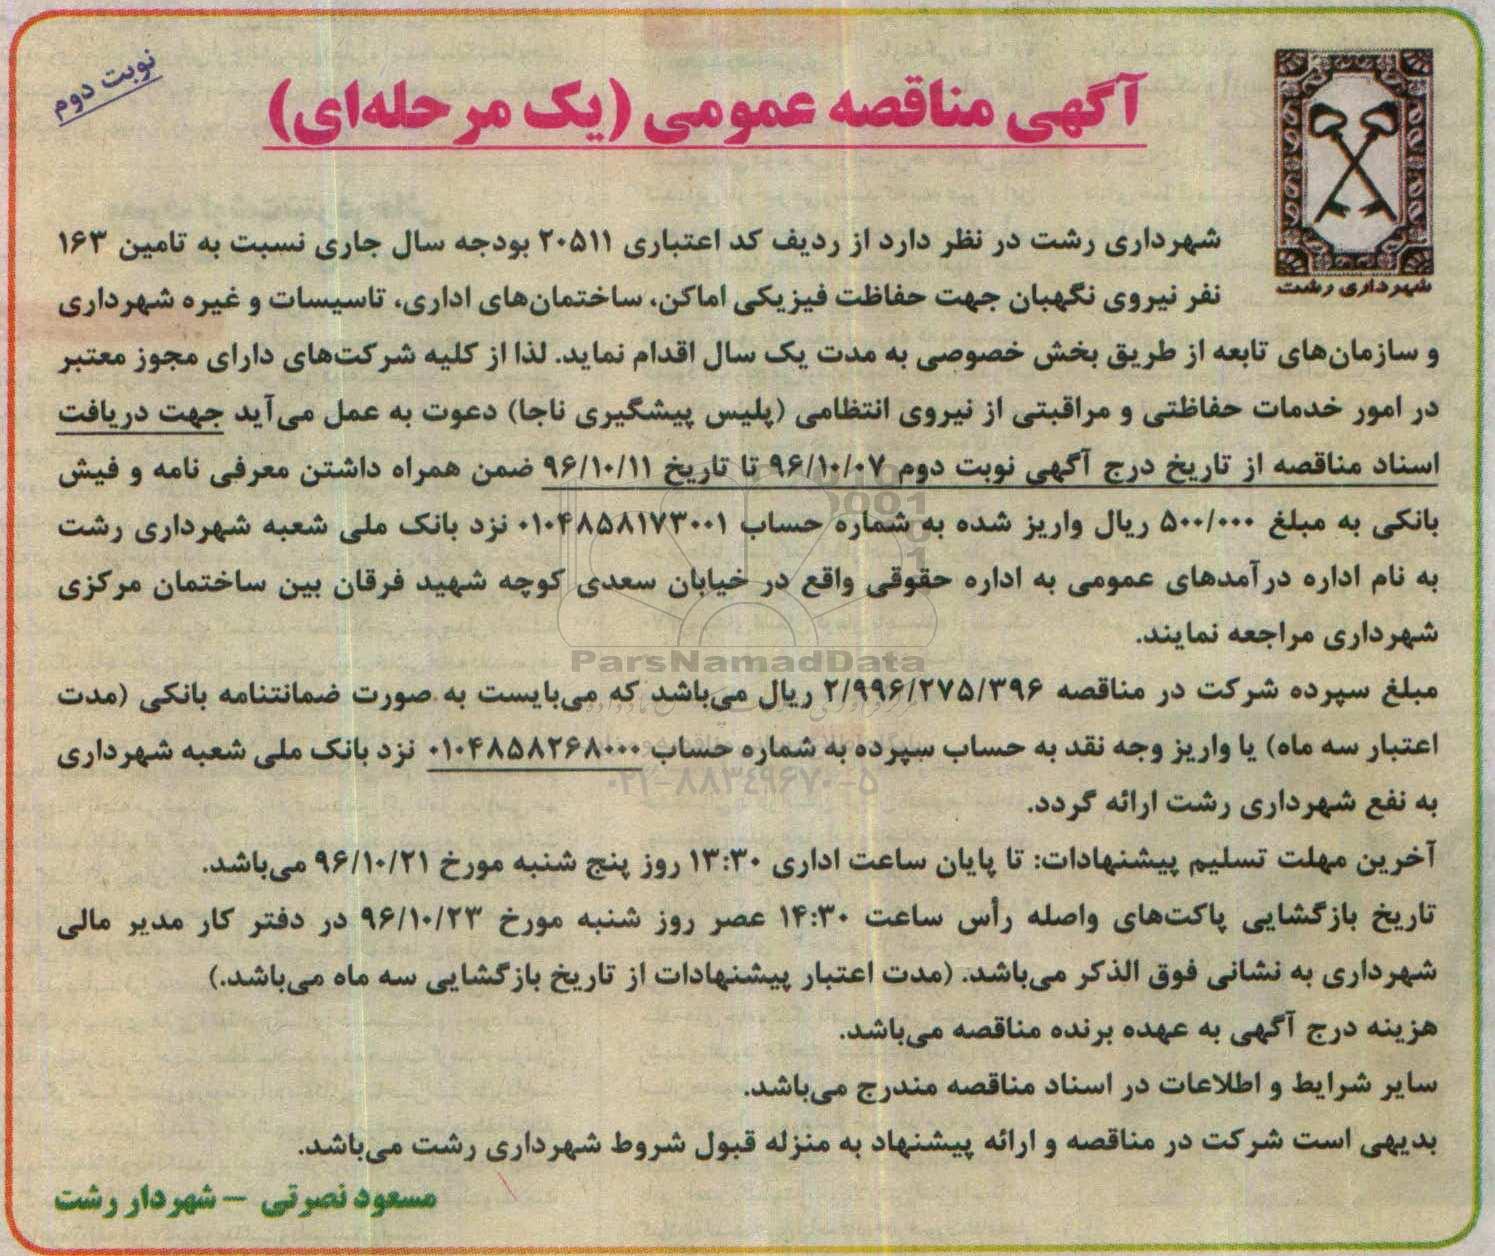 نوبت دوم
آگهی مناقصه عمومی (یک مرحله‌ای)
شهرداری رشت
شهرداری رشت در نظر دارد از ردیف کد اعتباری ۲۰۵۱۱ بودجه سال جاری نسبت به تامین ۱۶۳
نفر نیروی نگهبان جهت حفاظت فیزیکی اماکن، ساختمان‌های اداری، تاسیسات و غیره شهرداری
و سازمان‌های تابعه از طریق بخش خصوصی به مدت یک سال اقدام نماید. لذا از کلیه شرکت‌های دارای مجوز معتبر
در امور خدمات حفاظتی و مراقبتی از نیروی انتظامی (پلیس پیشگیری ناجا) دعوت به عمل می‌آید جهت دریافت
اسناد مناقصه از تاریخ درج آگهی نوبت دوم ۹۶/۱۰/۰۷ تا تاریخ ۹۶/۱۰/۱۱ ضمن همراه داشتن معرفی نامه و فیش
بانکی به مبلغ ۵۰۰/۰۰۰ ریال واریز شده به شماره حساب ۰۱۰۴۸۵۸۱۷۳۰۰۱ نزد بانک ملی شعبه شهرداری رشت
به نام اداره درآمدهای عمومی به اداره حقوقی واقع در خیابان سعدی کوچه شهید فرقان بین ساختمان مرکزی
شهرداری مراجعه نمایند.
ParsNamadData
مبلغ سپرده شرکت در مناقصه ۲/۹۹۶/۲۷۵/۳۹۶ ریال می‌باشد که می‌بایست به صورت ضمانتنامه بانکی (مدت
اعتبار سه ماه) یا واریز وجه نقد به حساب سپرده به شماره حساب ۰۱۰۴۸۵۸۲۶۸۰۰۰ نزد بانک ملی شعبه شهرداری
۰۲۱-۸۸۳۴۹۶۷۰-۵
به نفع شهرداری رشت ارائه گردد.
آخرین مهلت تسلیم پیشنهادات: تا پایان ساعت اداری ۱۳:۳۰ روز پنج شنبه مورخ ۹۶/۱۰/۲۱ می‌باشد.
تاریخ بازگشایی پاکت‌های واصله رأس ساعت ۱۴:۳۰ عصر روز شنبه مورخ ۹۶/۱۰/۲۳ در دفتر کار مدیر مالی
شهرداری به نشانی فوق الذکر می‌باشد. (مدت اعتبار پیشنهادات از تاریخ بازگشایی سه ماه می‌باشد.)
هزینه درج آگهی به عهده برنده مناقصه می‌باشد.
سایر شرایط و اطلاعات در اسناد مناقصه مندرج می‌باشد.
بدیهی است شرکت در مناقصه و ارائه پیشنهاد به منزله قبول شروط شهرداری رشت می‌باشد.
مسعود نصرتی - شهردار رشت